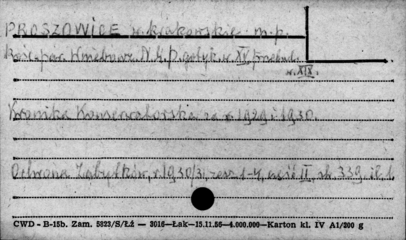 PROSZOWICE w. krakowskie m. p.
Kość. par. Wniebowz. N.M.P. gotyk. w. XV, przebud.
w. XIX.
Kronika Konserwatorska za r. 1929 i 1930.
Ochrona Zabytków, r. 1930/31, zesz. 1-4, część II, sk. 339, il. 1.
CWD - B-15b. Zam. 3823/S/Łź — 3616—Łak—15.11.55—4.000.000—Karton kl. IV A1/200 g